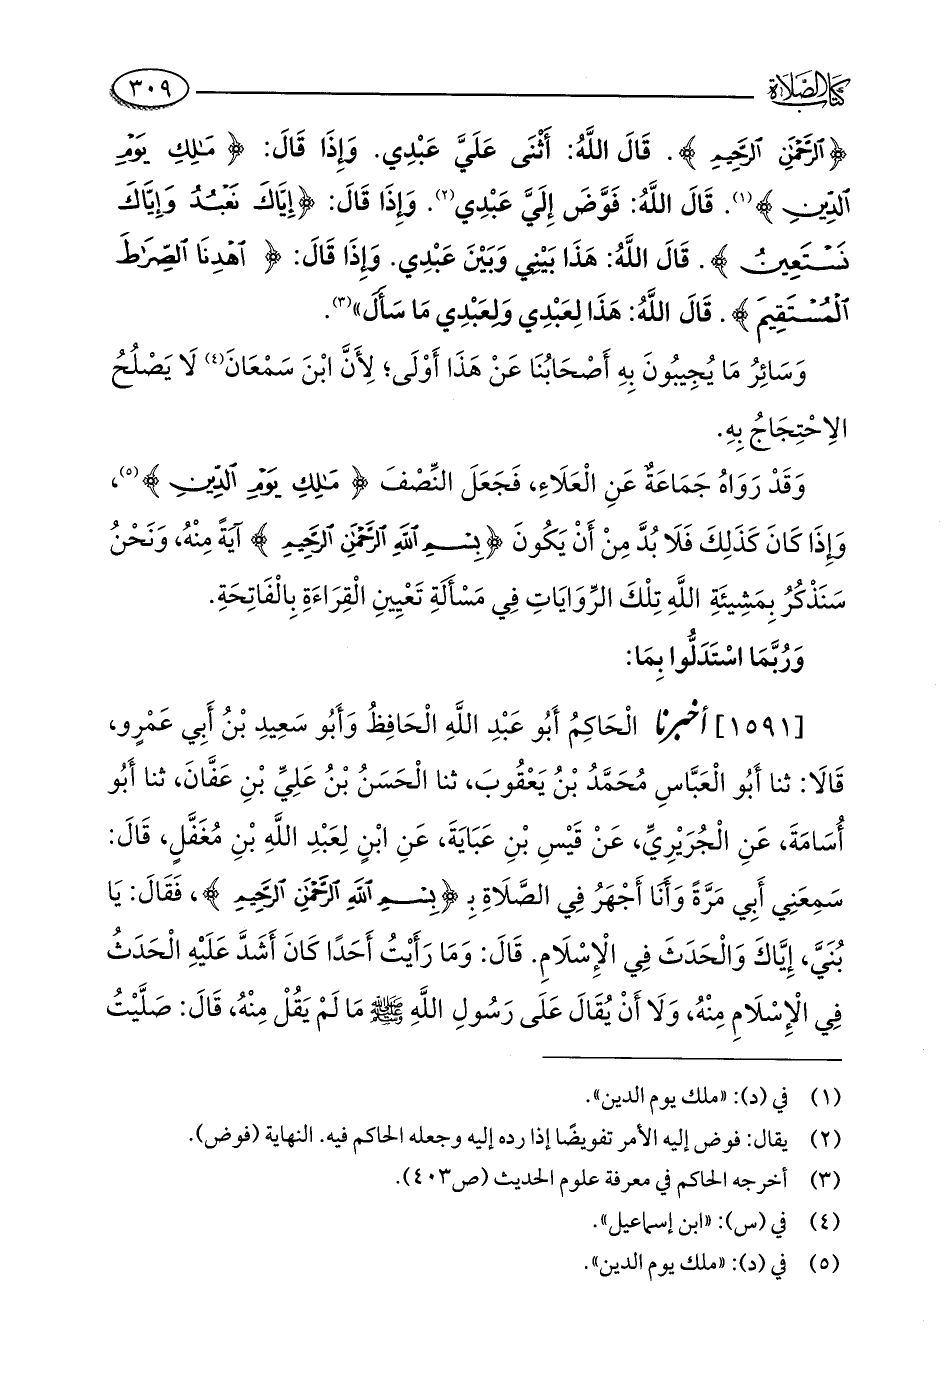 كتاب الصلاة
٣٠٩
﴿ٱلرَّحْمَٰنِ ٱلرَّحِيمِ﴾. قَالَ اللَّهُ: أَثْنَى عَلَيَّ عَبْدِي. وَإِذَا قَالَ: ﴿مَٰلِكِ يَوْمِ
ٱلدِّينِ﴾(١). قَالَ اللَّهُ: فَوَّضَ إِلَيَّ عَبْدِي(٢). وَإِذَا قَالَ: ﴿إِيَّاكَ نَعْبُدُ وَإِيَّاكَ
نَسْتَعِينُ﴾. قَالَ اللَّهُ: هَذَا بَيْنِي وَبَيْنَ عَبْدِي. وَإِذَا قَالَ: ﴿ٱهْدِنَا ٱلصِّرَٰطَ
ٱلْمُسْتَقِيمَ﴾. قَالَ اللَّهُ: هَذَا لِعَبْدِي وَلِعَبْدِي مَا سَأَلَ»(٣).
وَسَائِرُ مَا يُجِيبُونَ بِهِ أَصْحَابُنَا عَنْ هَذَا أَوْلَى؛ لِأَنَّ ابْنَ سَمْعَانَ(٤) لَا يَصْلُحُ
الِاحْتِجَاجُ بِهِ.
وَقَدْ رَوَاهُ جَمَاعَةٌ عَنِ الْعَلَاءِ، فَجَعَلَ النِّصْفَ ﴿مَٰلِكِ يَوْمِ ٱلدِّينِ﴾(٥)،
وَإِذَا كَانَ كَذَلِكَ فَلَا بُدَّ مِنْ أَنْ يَكُونَ ﴿بِسْمِ ٱللَّهِ ٱلرَّحْمَٰنِ ٱلرَّحِيمِ﴾ آيَةً مِنْهُ، وَنَحْنُ
سَنَذْكُرُ بِمَشِيئَةِ اللَّهِ تِلْكَ الرِّوَايَاتِ فِي مَسْأَلَةِ تَعْيِينِ الْقِرَاءَةِ بِالْفَاتِحَةِ.
وَرُبَّمَا اسْتَدَلُّوا بِمَا:
[١٥٩١] أخبرنا الْحَاكِمُ أَبُو عَبْدِ اللَّهِ الْحَافِظُ وَأَبُو سَعِيدِ بْنُ أَبِي عَمْرٍو،
قَالَا: ثنا أَبُو الْعَبَّاسِ مُحَمَّدُ بْنُ يَعْقُوبَ، ثنا الْحَسَنُ بْنُ عَلِيِّ بْنِ عَفَّانَ، ثنا أَبُو
أُسَامَةَ، عَنِ الْجُرَيْرِيِّ، عَنْ قَيْسِ بْنِ عَبَايَةَ، عَنِ ابْنٍ لِعَبْدِ اللَّهِ بْنِ مُغَفَّلٍ، قَالَ:
سَمِعَنِي أَبِي مَرَّةً وَأَنَا أَجْهَرُ فِي الصَّلَاةِ بِـ ﴿بِسْمِ ٱللَّهِ ٱلرَّحْمَٰنِ ٱلرَّحِيمِ﴾، فَقَالَ: يَا
بُنَيَّ، إِيَّاكَ وَالْحَدَثَ فِي الْإِسْلَامِ. قَالَ: وَمَا رَأَيْتُ أَحَدًا كَانَ أَشَدَّ عَلَيْهِ الْحَدَثُ
فِي الْإِسْلَامِ مِنْهُ، وَلَا أَنْ يُقَالَ عَلَى رَسُولِ اللَّهِ ﷺ مَا لَمْ يَقُلْ مِنْهُ، قَالَ: صَلَّيْتُ
(١) في (د): «ملك يوم الدين».
(٢) يقال: فوض إليه الأمر تفويضًا إذا رده إليه وجعله الحاكم فيه. النهاية (فوض).
(٣) أخرجه الحاكم في معرفة علوم الحديث (ص٤٠٣).
(٤) في (س): «ابن إسماعيل».
(٥) في (د): «ملك يوم الدين».